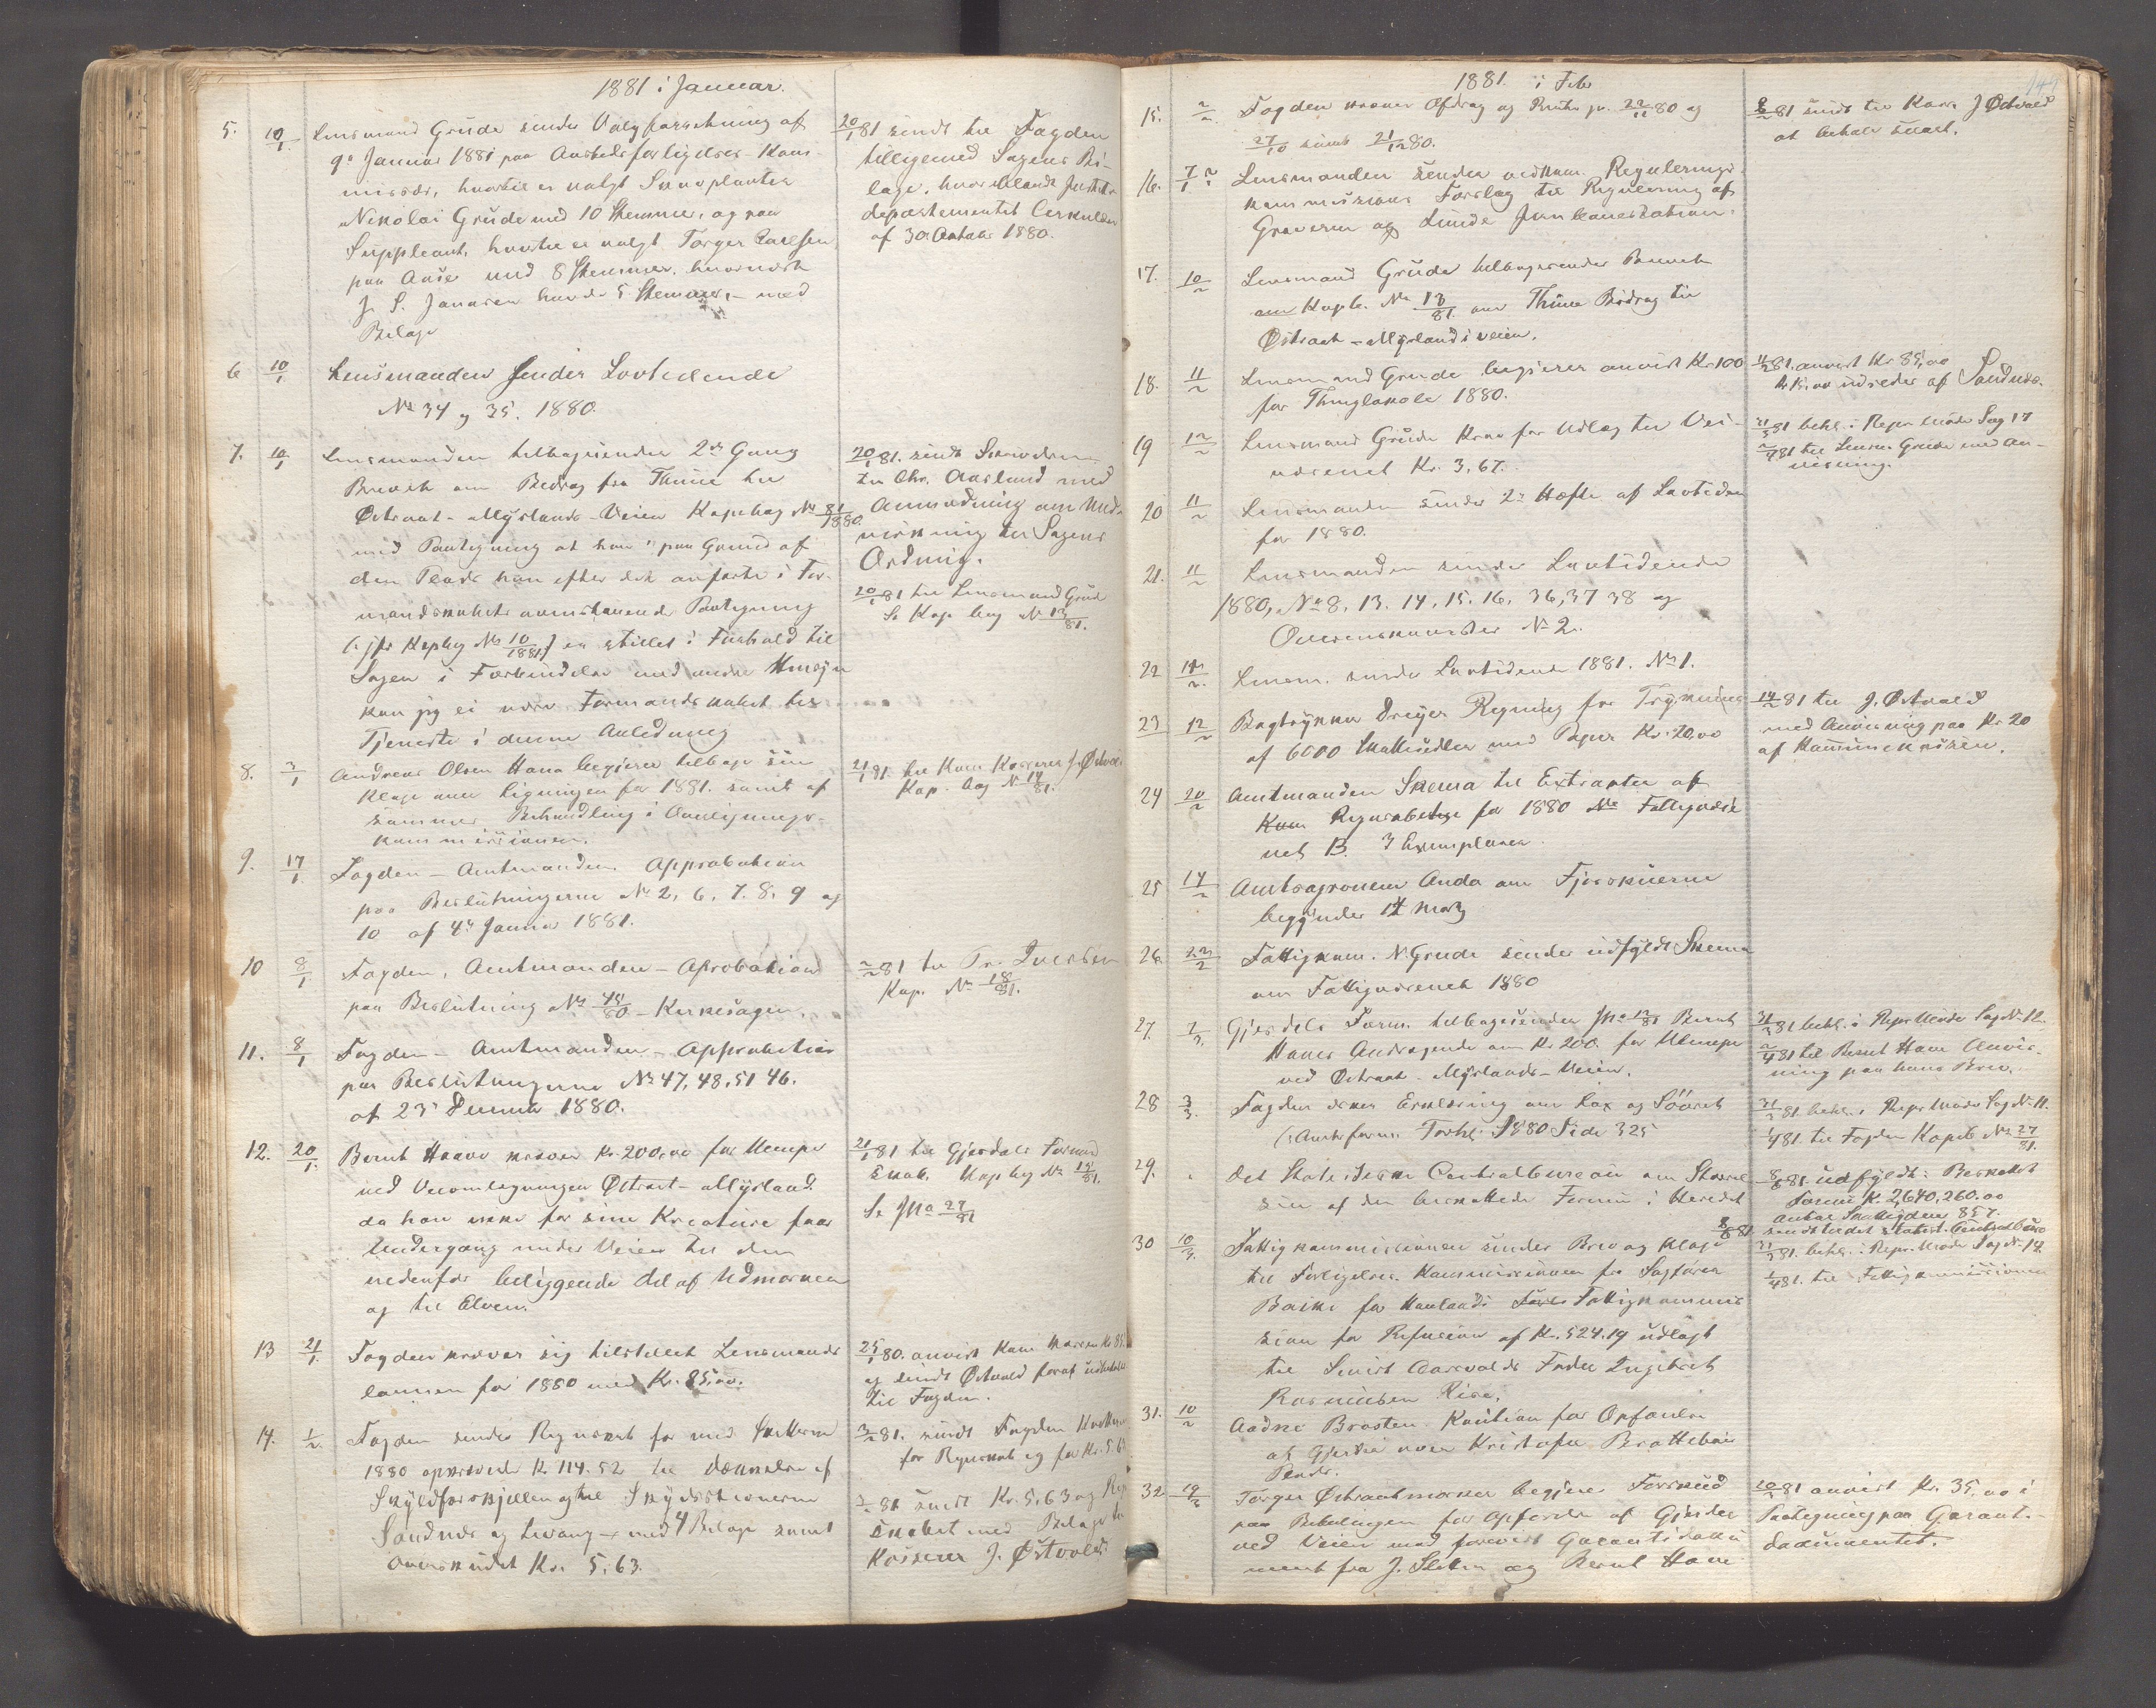 1881 i Januar.
5. 10/1 Lensmand Grude sender Valgforretning af
9de Januar 1881 paa Amtsdsforligelses-Kom-
missær, hvortil er valgt Skovplanter
Nikolai Grude med 10 Stemmer, og som
Suppleant, hvortil er valgt Torger Carlsen
paa Aase med 8 Stemmer, hvornæst
J. S. Jonassen havde 5 Stemmer, – med
Bilage
20/1 81 sendt til Fogden
tilligemed Sagens Bi-
lage, hvoriblandt Justits-
departementets Cirkulære
af 30 Oktober 1880.
6 10/1 Lensmanden sender Lovtidende
No 34 og 35. 1880.
7. 10/1 Lensmanden tilbagesender 2den Gang
Brevet om Bidrag fra Thime til
Østraat-Mysland-Veien Kopibog No 81/1880.
med Paategning at han "paa Grund af
den Plads han efter det anførte i For-
mandskabets ovenstaaende Paategning
(: jfr Kopbog No 10/1881) er stillet i Forhold til
Sagen i Forbindelse med andre Hensyn
kan jeg ei være Formandskabet til
Tjeneste i denne Anledning
20/1 81. sendt
til Chr. Aarlund med
Anmodning om Med-
virkning til Sagens
Ordning.
20/1 81 til Lensmand Grude
Se Kop. bog No 13/81.
8. 3/1 Andreas Olsen Hana begjærer tilbage sin
Klage over Ligningen for 1881. samt af
sammes Behandling i Overlignings-
kommissionen.
21/1 81. til Kom. Kasserer J. Østvold
Kop. bog No 14/81.
9. 17/1 Fogden – Amtmanden. Approbation
paa Beslutningerne No 2, 6, 7. 8, 9 og
10 af 4de Januar 1881.
10 8/1 Fogden, Amtmanden – Aprobation
paa Beslutning No 45/80 – Kirkesagen.
2/2 81 til Tr. Iversen
Kop. No 18/81.
11. 8/1 Fogden – Amtmanden – Approbation
paa Beslutningerne No 47, 48, 51 46.
af 23 1880.
12. 20/1. Bernt Haave kræver Kr. 200,00 for Ulempe
ved Veiomlægningen Østraat – Mysland.
da han ikke for sine Kreature faar
Undergang under Veien til den
nedenfor beliggende del af Udmarken
og til Elven.
21/1 81 til Gjesdals Formand
skab. Kop bog No 15/81.
Se No 27/81
13 21/1. Fogden kræver sig tilstillet Lensmands
lønnen for 1880 med Kr. 85,00.
25/1 80. anvist Kom Kassen Kr 85
og sendt Østvold for at
til Fogden.
14. 1/2. Fogden sender Regnskab for med Skatterne
1880 opkrævede Kr 114.52 til Dækkelse af
Skyldforskjellen og til Skydsstationerne
Sandnæs og med 4 Bilage samt
Overskudet Kr. 5,63.
3/2 81. sendt Fogden
for Regnskab og for Kr. 5.63
2/2 81 sendt Kr. 5,63 og Regn
skabet med Bilage til
Kasserer J. Østvold
1881. i Feb
15. 2/2 Fogden kræver Afdrag og Renter pr. 22/11 80 og
27/10 samt 21/12 80.
2/2 81 sendt til Kass. J Østvold
at betale snart.
16. 7/1 2 Lensmanden sender vedkom. Regulerings-
kommissions Forslag til Regulering af
Graverne og Lunde Jernbanestation.
17. 10/2 Lensmand Grude tilbagesender Brevet
om Kopb. No 13/81. om Thime Bidrag til
Østraat – Myslands veien.
18. 11/2 Lensmand Grude begjærer anvist Kr 100
for Thinglokale 1880.
11/2 81. anvist Kr 85,00
Kr. 15,00 udredes af Sandnes.
19 12/2 Lensmand Grude Krav for Udlæg til Vei-
væsenet Kr. 3,67.
31/3 81 behl. i Repr. Møde Sag 17
2/4 81 til Lensm. Grude med An-
visning.
20 11/2 Lensmanden sender 2det Hæfte af Lovtiden
for 1880.
21. 11/2 Lensmanden sender Lovtidende
1880, No 8, 13. 14, 15. 16. 36, 37 38 og
Overenskomster No 2.
22 11/2. Lensm. sender Lovtidende 1881. No 1.
23 12/2 Bogtrykker Dreyer Regning for Trykning
af 6000 Skattesedler med Papir Kr. 20,00
14/2 81 til J. Østvold
med Anvisning paa Kr 20
af Kommunekassen.
24 20/2 Amtmanden Skema til Extrakter af
Regnskabet for 1880 Fattigvæse
net B. 3 Exemplarer.
25 14/2 Amtsagronom Anda om Fjøsskuerne
begynder 14 Marz
26. 22/2 Fattigkom. N. Grude sender udfyldt Skema
om Fattigvæsenet 1880
27. 2/3. Gjesdals Form. tilbagesender No 12/81 Bernt
Haves Andragende om Kr. 200. for Ulempe
ved Østraat – Myslands-Veien.
31/3 81 behl. i Repr. Møde Sag No 12.
2/4 81 til Bernt Have Anvis-
ning paa hans Brev.
28 3/3. Fogden ønsker Erklæring om Lax og Søöret
(: Amtsform. Forhl. 1880 Side 325
31/3 81. behl. i Repr Møde Sag No 11.
1/4 81. til Fogden Kopib. No 27/81.
29. " Det Statistiske Centralbureau om Større
sen af den beskattede Formue i Herredet
8/3 81. udfyldt: Beskattet
Formue Kr. 2,640,260,00
Antal Skatteydere 857.
8/3 81 sendt til det statist. Centralbüro
30 10/3. Fattigkommissionen sender Brev og Klage
til Forligelses-Kommissionen fra Sagfører
Baike for Haalands Fattigkommis
sion for Refusion af Kr. 524.19 udlagt
til Sivert Aarsvolds Fader Ingebret
Rasmussen Riise.
31/3 81. behl. i Repr. Møde Sag No 14
1/4 81. til Fattigkommissionen
31. 10/2 Aadne Brasten Kaution for Opførelse
af Gjerde over Kristofer Brattebøs
Plads.
32 19/2 Torger Østraatmarken begjærer Forskud
paa Betalingen for Opførelse af Gjerder
ved Veien med forevist Garantidoku
ment fra J. Sletten og Bernt Have
20/3 81 anvist Kr. 35,00 i
Paategning paa Garant-
dokumentet.